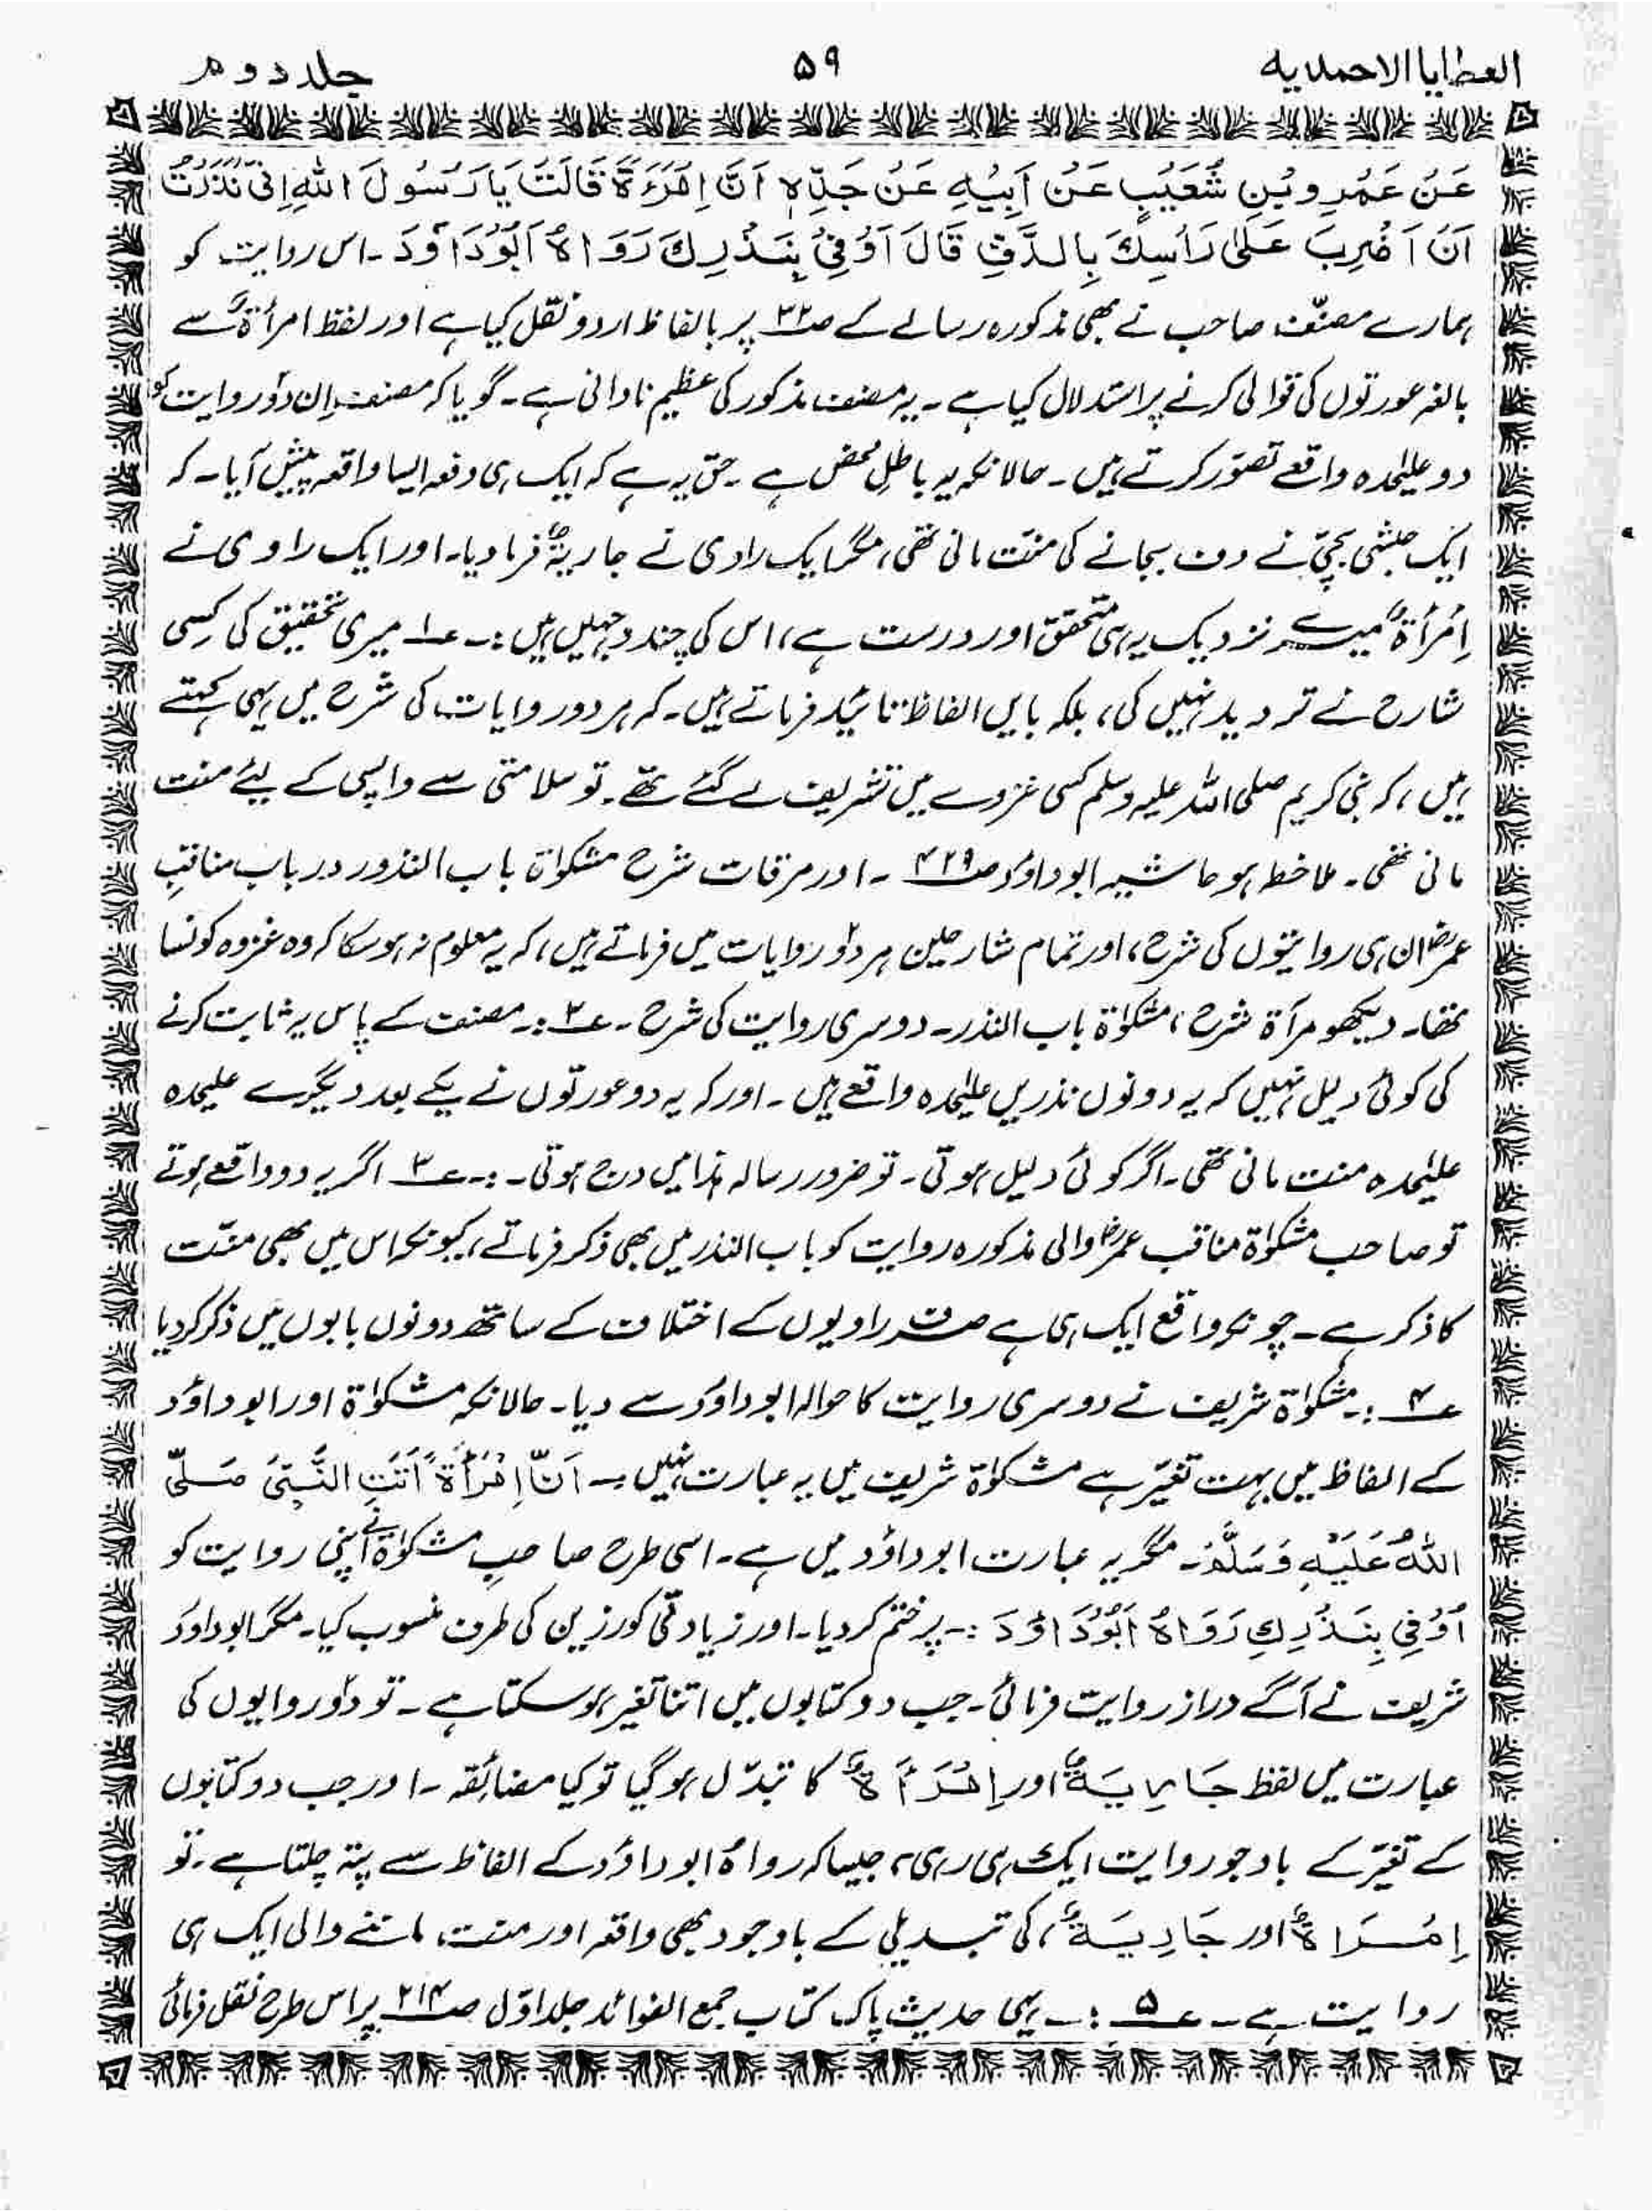 العطایا الاحمدیه ۵۹ جلد دوم
عَنْ عَمْرِو بْنِ شُعَيْبٍ عَنْ اَبِيْهِ عَنْ جَدِّهٖ اَنَّ اِمْرَءَةً قَالَتْ يَا رَسُوْلَ اللهِ اِنِّىْ نَذَرْتُ
اَنْ اَضْرِبَ عَلٰى رَأْسِكَ بِالدَّفِّ قَالَ اَوْفِىْ بِنَذْرِكَ رَوَاهُ اَبُوْدَاوٗدَ ۔ اس روایت کو
ہمارے مصنّف صاحب نے بھی مذکورہ رسالے کے صـ۳۲ پر بالفاظ اردو نقل کیا ہے اور لفظ امرأۃٌ سے
بالغہ عورتوں کی قوالی کرنے پر استدلال کیا ہے ۔ یہ مصنف مذکور کی عظیم نادانی ہے ۔ گویا کہ مصنف اِن دوؔ روایت کو
دو علیٰحدہ واقعے تصوّر کرتے ہیں ۔ حالانکہ یہ باطلِ محض ہے ۔ حق یہ ہے کہ ایک ہی دفعہ ایسا واقعہ پیش آیا ۔ کہ
ایک حبشی بچیّ نے دف بجانے کی منّت مانی تھی، مگر ایک راوی نے جاریۃٌ فرما دیا ۔ اور ایک راوی نے
اِمْرأۃٌ میرے نزدیک یہ ہی متحقق اور درست ہے، اس کی چند وجہیں ہیں :۔ عـ۱ میری تحقیق کی کِسی
شارح نے تردید نہیں کی، بلکہ بایں الفاظ تائید فرماتے ہیں ۔ کہ ہر دو روایات کی شرح میں یہی کہتے
ہیں، کہ نبی کریم صلی اللہ علیہ وسلم کسی غزوے میں تشریف لے گئے تھے ۔ تو سلامتی سے واپسی کے لیئے منت
مانی تھی ۔ ملاخطہ ہو حاشیہ ابوداؤد صـ۴۲۹ ۔ اور مرقات شرح مشکواۃ باب النذور در باب مناقبِ
عمرؓ ان ہی روایتوں کی شرح، اور تمام شارحین ہر دوؔ روایات میں فرماتے ہیں، کہ یہ معلوم نہ ہو سکا کہ وہ غزوہ کونسا
تھا ۔ دیکھو مرآۃ شرح، مشکوٰۃ باب النذر ۔ دوسری روایت کی شرح ۔ عـ۲ :۔ مصنف کے پاس یہ ثابت کرنے
کی کوئی دلیل نہیں کہ یہ دونوں نذریں علیٰحدہ واقعے ہیں ۔ اور کہ یہ دو عورتوں نے یکے بعد دیگرے علیحدہ
علیٰحدہ منت مانی تھی ۔ اگر کوئی دلیل ہوتی ۔ تو ضرور رسالہ ہٰذا میں درج ہوتی ۔ :۔ عـ۳ اگر یہ دو واقعے ہوتے
تو صاحب مشکوٰۃ مناقب عمرؓ والی مذکورہ روایت کو باب النذر میں بھی ذکر فرماتے، کیونکہ اس میں بھی منّت
کا ذکر ہے ۔ چونکہ واقع ایک ہی ہے صرف راویوں کے اختلاف کے ساتھ دونوں بابوں میں ذکر کر دیا
عـ۴ :۔ مشکوٰۃ شریف نے دوسری روایت کا حوالہ ابوداؤد سے دیا ۔ حالانکہ مشکوٰۃ اور ابوداؤد
کے الفاظ میں بہت تغیّر ہے مشکوٰۃ شریف میں یہ عبارت نہیں ۔ اَنَّ اِمْرَأَةً اَتَتِ النَّبِىَّ صَلَّى
اللهُ عَلَيْهِ وَسَلَّمَ ۔ مگر یہ عبارت ابوداؤد میں ہے ۔ اسی طرح صاحبِ مشکوٰۃ نے اپنی روایت کو
اَوْفِىْ بِنَذْرِكِ رَوَاهُ اَبُوْدَاوٗدَ :۔ پر ختم کر دیا ۔ اور زیادتی کو رزین کی طرف منسوب کیا ۔ مگر ابوداؤد
شریف نے آگے دراز روایت فرمائی ۔ جب دو کتابوں میں اتنا تغیر ہو سکتا ہے ۔ تو دوؔ روایوں کی
عبارت میں لفظ جَارِيَةٌ اور اِمْرَأَةٌ کا تبدّل ہو گیا تو کیا مضائقہ ۔ اور جب دو کتابوں
کے تغیّر کے باوجود روایت ایک ہی رہی، جیسا کہ رواہُ ابوداؤد کے الفاظ سے پتہ چلتا ہے ۔ تو
اِمْرَاةٌ اور جَارِيَةٌ، کی تبدیلی کے باوجود بھی واقعہ اور منت ماننے والی ایک ہی
روایت ہے ۔ عـ۵ :۔ یہی حدیث پاک کتاب جمع الفوائد جلد اوّل صـ۲۱۴ پر اس طرح نقل فرمائی